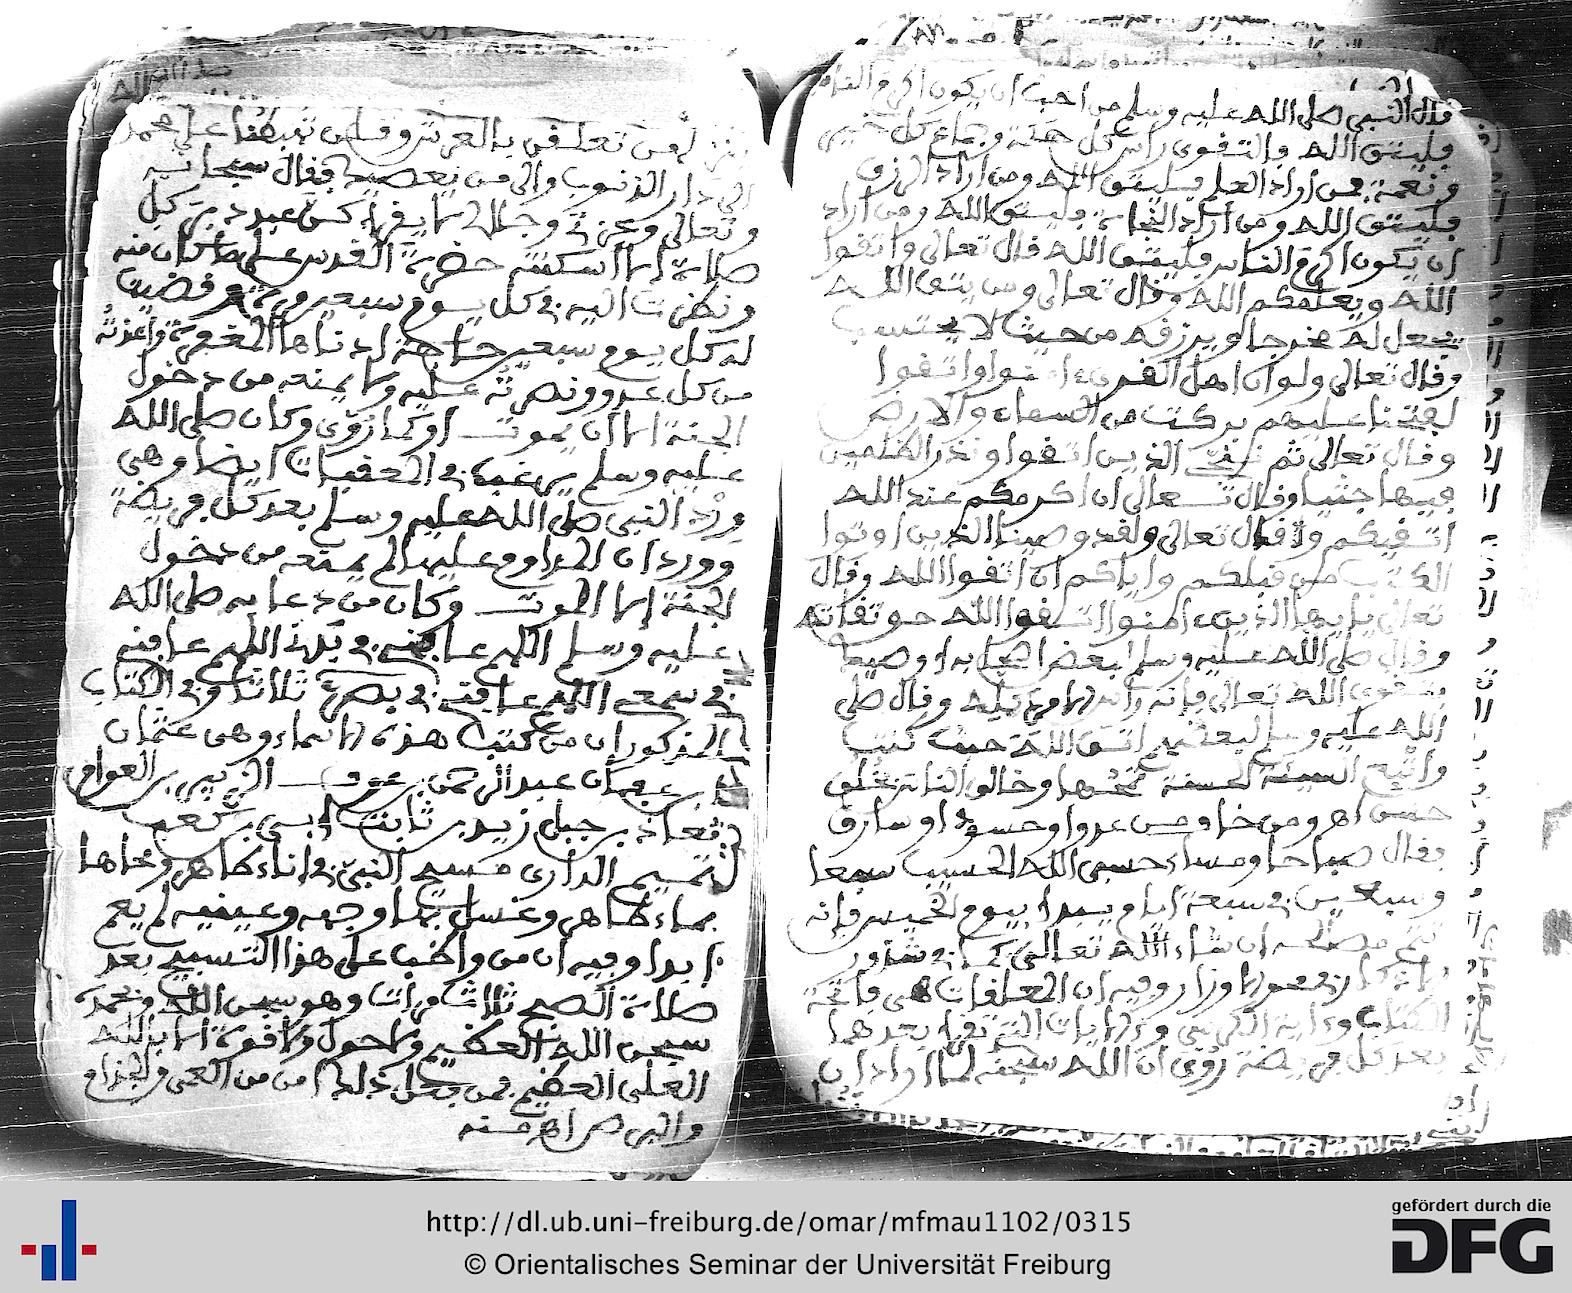 قال النبي صلى الله عليه وسلم من احب ان يكون اكرم الناس
فليتق الله والتقوى راس كل حكمة وجماع كل خير
ونعمة فمن أراد العلم فليتق الله ومن أراد الرزق
فليتق الله ومن أراد النجاة فليتق الله ومن أراد
ان يكون اكرم الناس فليتق الله قال تعالى واتقوا
الله ويعلمكم الله وقال تعالى ومن يتق الله
يجعل له مخرجا ويرزقه من حيث لا يحتسب
وقال تعالى ولو ان اهل القرى ءامنوا واتقوا
لفتحنا عليهم بركت من السماء والارض
وقال تعالى ثم ننجي الذين اتقوا ونذر الظلمين
فيها جثيا وقال تعالى ان اكرمكم عند الله
اتقيكم وقال تعالى ولقد وصينا الذين اوتوا
الكتب من قبلكم واياكم ان اتقوا الله وقال
تعالى يا يها الذين ءامنوا اتقوا الله حق تقاته
وقال صلى الله عليه وسلم لبعض اصحابه اوصيك
بتقوى الله تعالى فإنه راس الامر كله وقال صلى
الله عليه وسلم لبعضهم اتق الله حيث كنت
واتبع السيئة الحسنة تمحها وخالق الناس بخلق
حسن اهـ ومن خاف من عدو او حسود او سارق
فقال صباحا ومساء حسبي الله الحسيب سبعا
وسبعين في سبعة ايام ويبدا بيوم الخميس فإنه
ان شاء الله تعالى كما في شذور
الاوزار وفيه ان المعلقات هي فاتحة
الكتاب وءاية الكرسي والايات التي بعدهما
بعد كل فريضة روي ان الله سبحنه لما اراد ان
لهن تعلقن بالعرش وقلن تهبطنا على محمد
الى دار الذنوب والى من يعصيك فقال سبحانه
وتعالى وعزتي وجلالي لا يقرأ كن عبد دبر كل
صلاة الا اسكنته حضرة القدس على ما كان منه
ونظرت اليه في كل يوم سبعين مرة وقضيت
له كل يوم سبعين حاجة ادناها المغفرة واعذته
من كل عدو ونصرته عليه ولا يمنعه من دخول
الجنة الا ان يموت او كما روي وكان صلى الله
عليه وسلم يرغب في المعقبات ايضا وهي
ورد النبي صلى الله عليه وسلم بعد كل فريضة
وورد ان المداوم عليها لم يمنعه من دخول
الجنة الا الموت وكان من دعايه صلى الله
عليه وسلم اللهم عافني في بدني اللهم عافني
في سمعي اللهم عافني في بصري ثلاثا وفي الكتاب
المذكور ان من كتب هذه الاسماء وهي عثمان
بن عفان عبد الرحمن بن عوف الزبير بن العوام
معاذ بن جبل زيد بن ثابت ابي بن كعب
تميم الداري مسبح النبي في اناء طاهر ومحاها
بماء طاهر وغسل بها وجهه وعينيه لم يعم
ابدا وفيه ان من واظب على هذا التسبيح بعد
صلاة الصبح ثلاث مرات وهو سبحن الله وبحمده
سبحن الله العظيم ولا حول ولا قوة الا بالله
العلي العظيم فمن فعل ذلك امن من العمى والجذام
والبرص اهـ منه
http://dl.ub.uni-freiburg.de/omar/mfmau1102/0315
© Orientalisches Seminar der Universität Freiburg
gefördert durch die
DFG